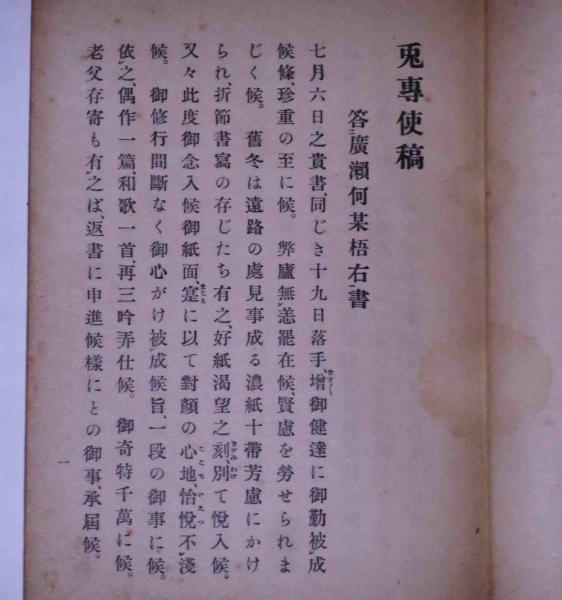 兎專使稿
答廣瀨何某梧右書
七月六日之貴書、同じき十九日落手、增御健達に御勤被成
候條、珍重の至に候。弊廬無恙罷在候、賢慮を勞せられま
じく候。舊冬は遠路の處見事成る濃紙十帶芳慮にかけ
られ、折節書寫の存じたち有之、好紙渴望之刻、別て悅入候。
又々此度御念入候御紙面、寔に以て對顏の心地、怡悅不淺
候。御修行間斷なく御心がけ被成候旨、一段の御事に候。
依之、偶作一篇、和歌一首、再三吟弄仕候。御奇特千萬に候。
老父存寄も有之ば、返書に申進候樣にとの御事、承屆候。
一